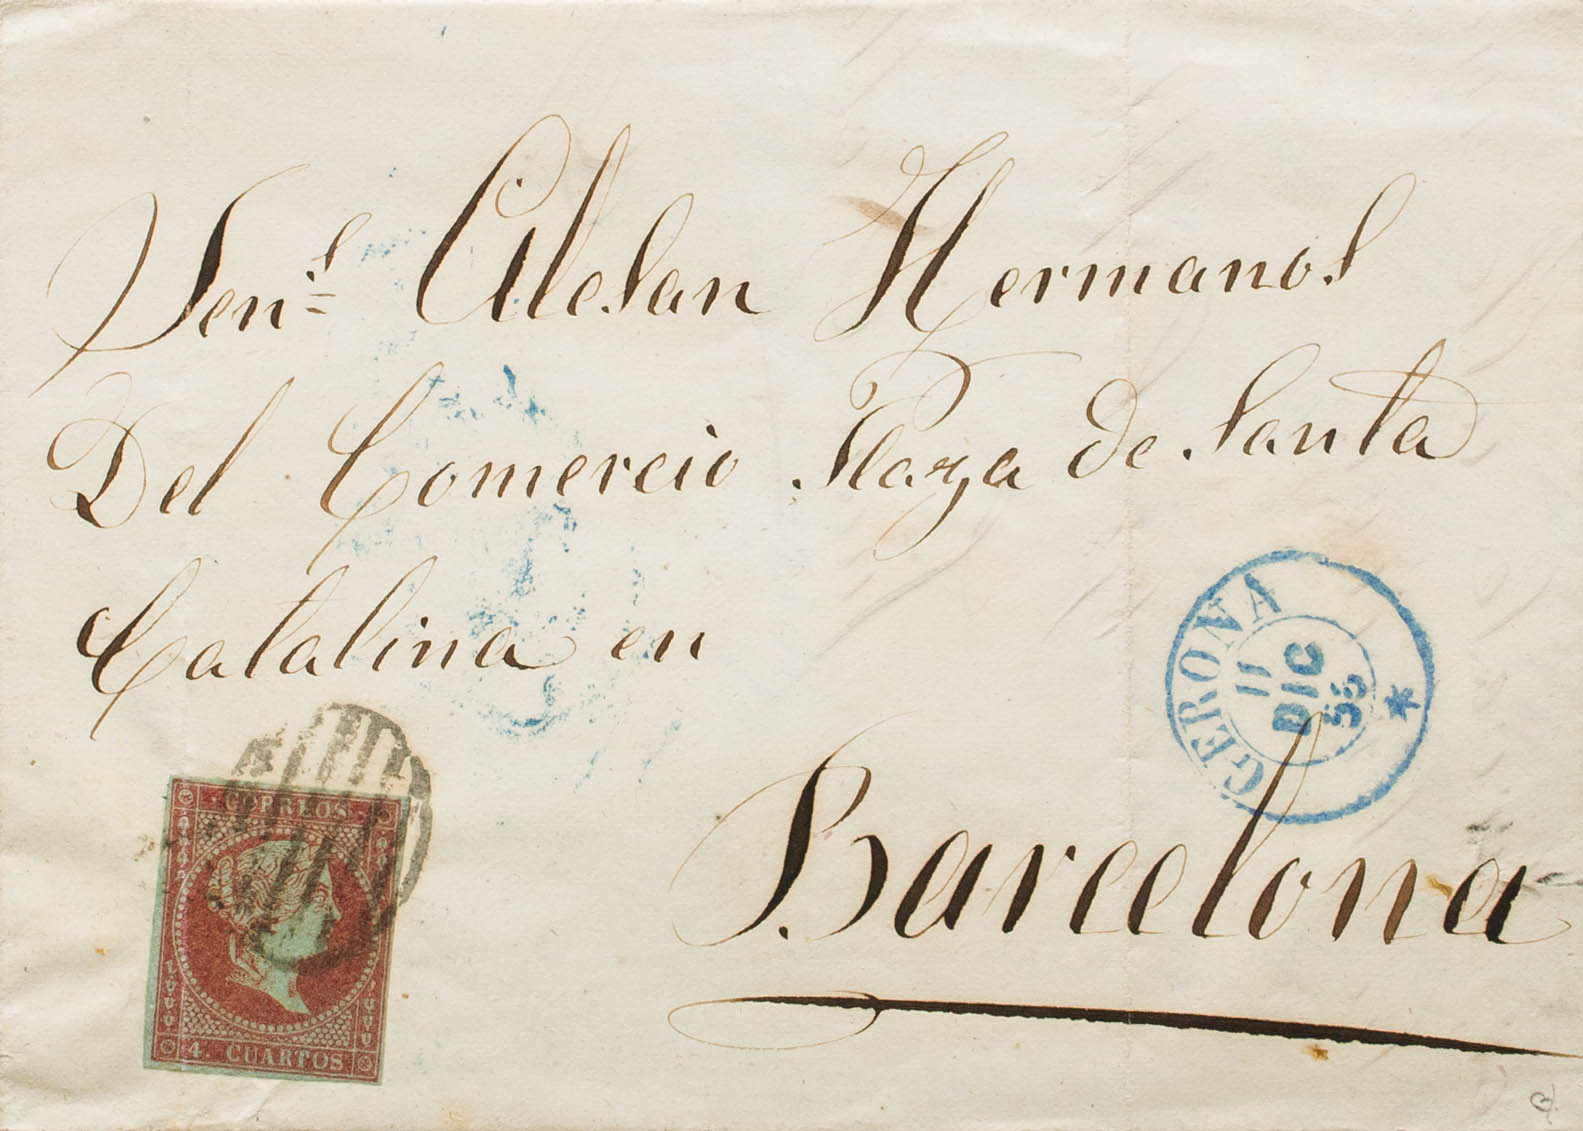 Sen.s Alesan Hermanos
Del Comercio Plaza de Santa
Catalina en
Barcelona
GERONA
11
DIC
55
CORREOS
4. CUARTOS